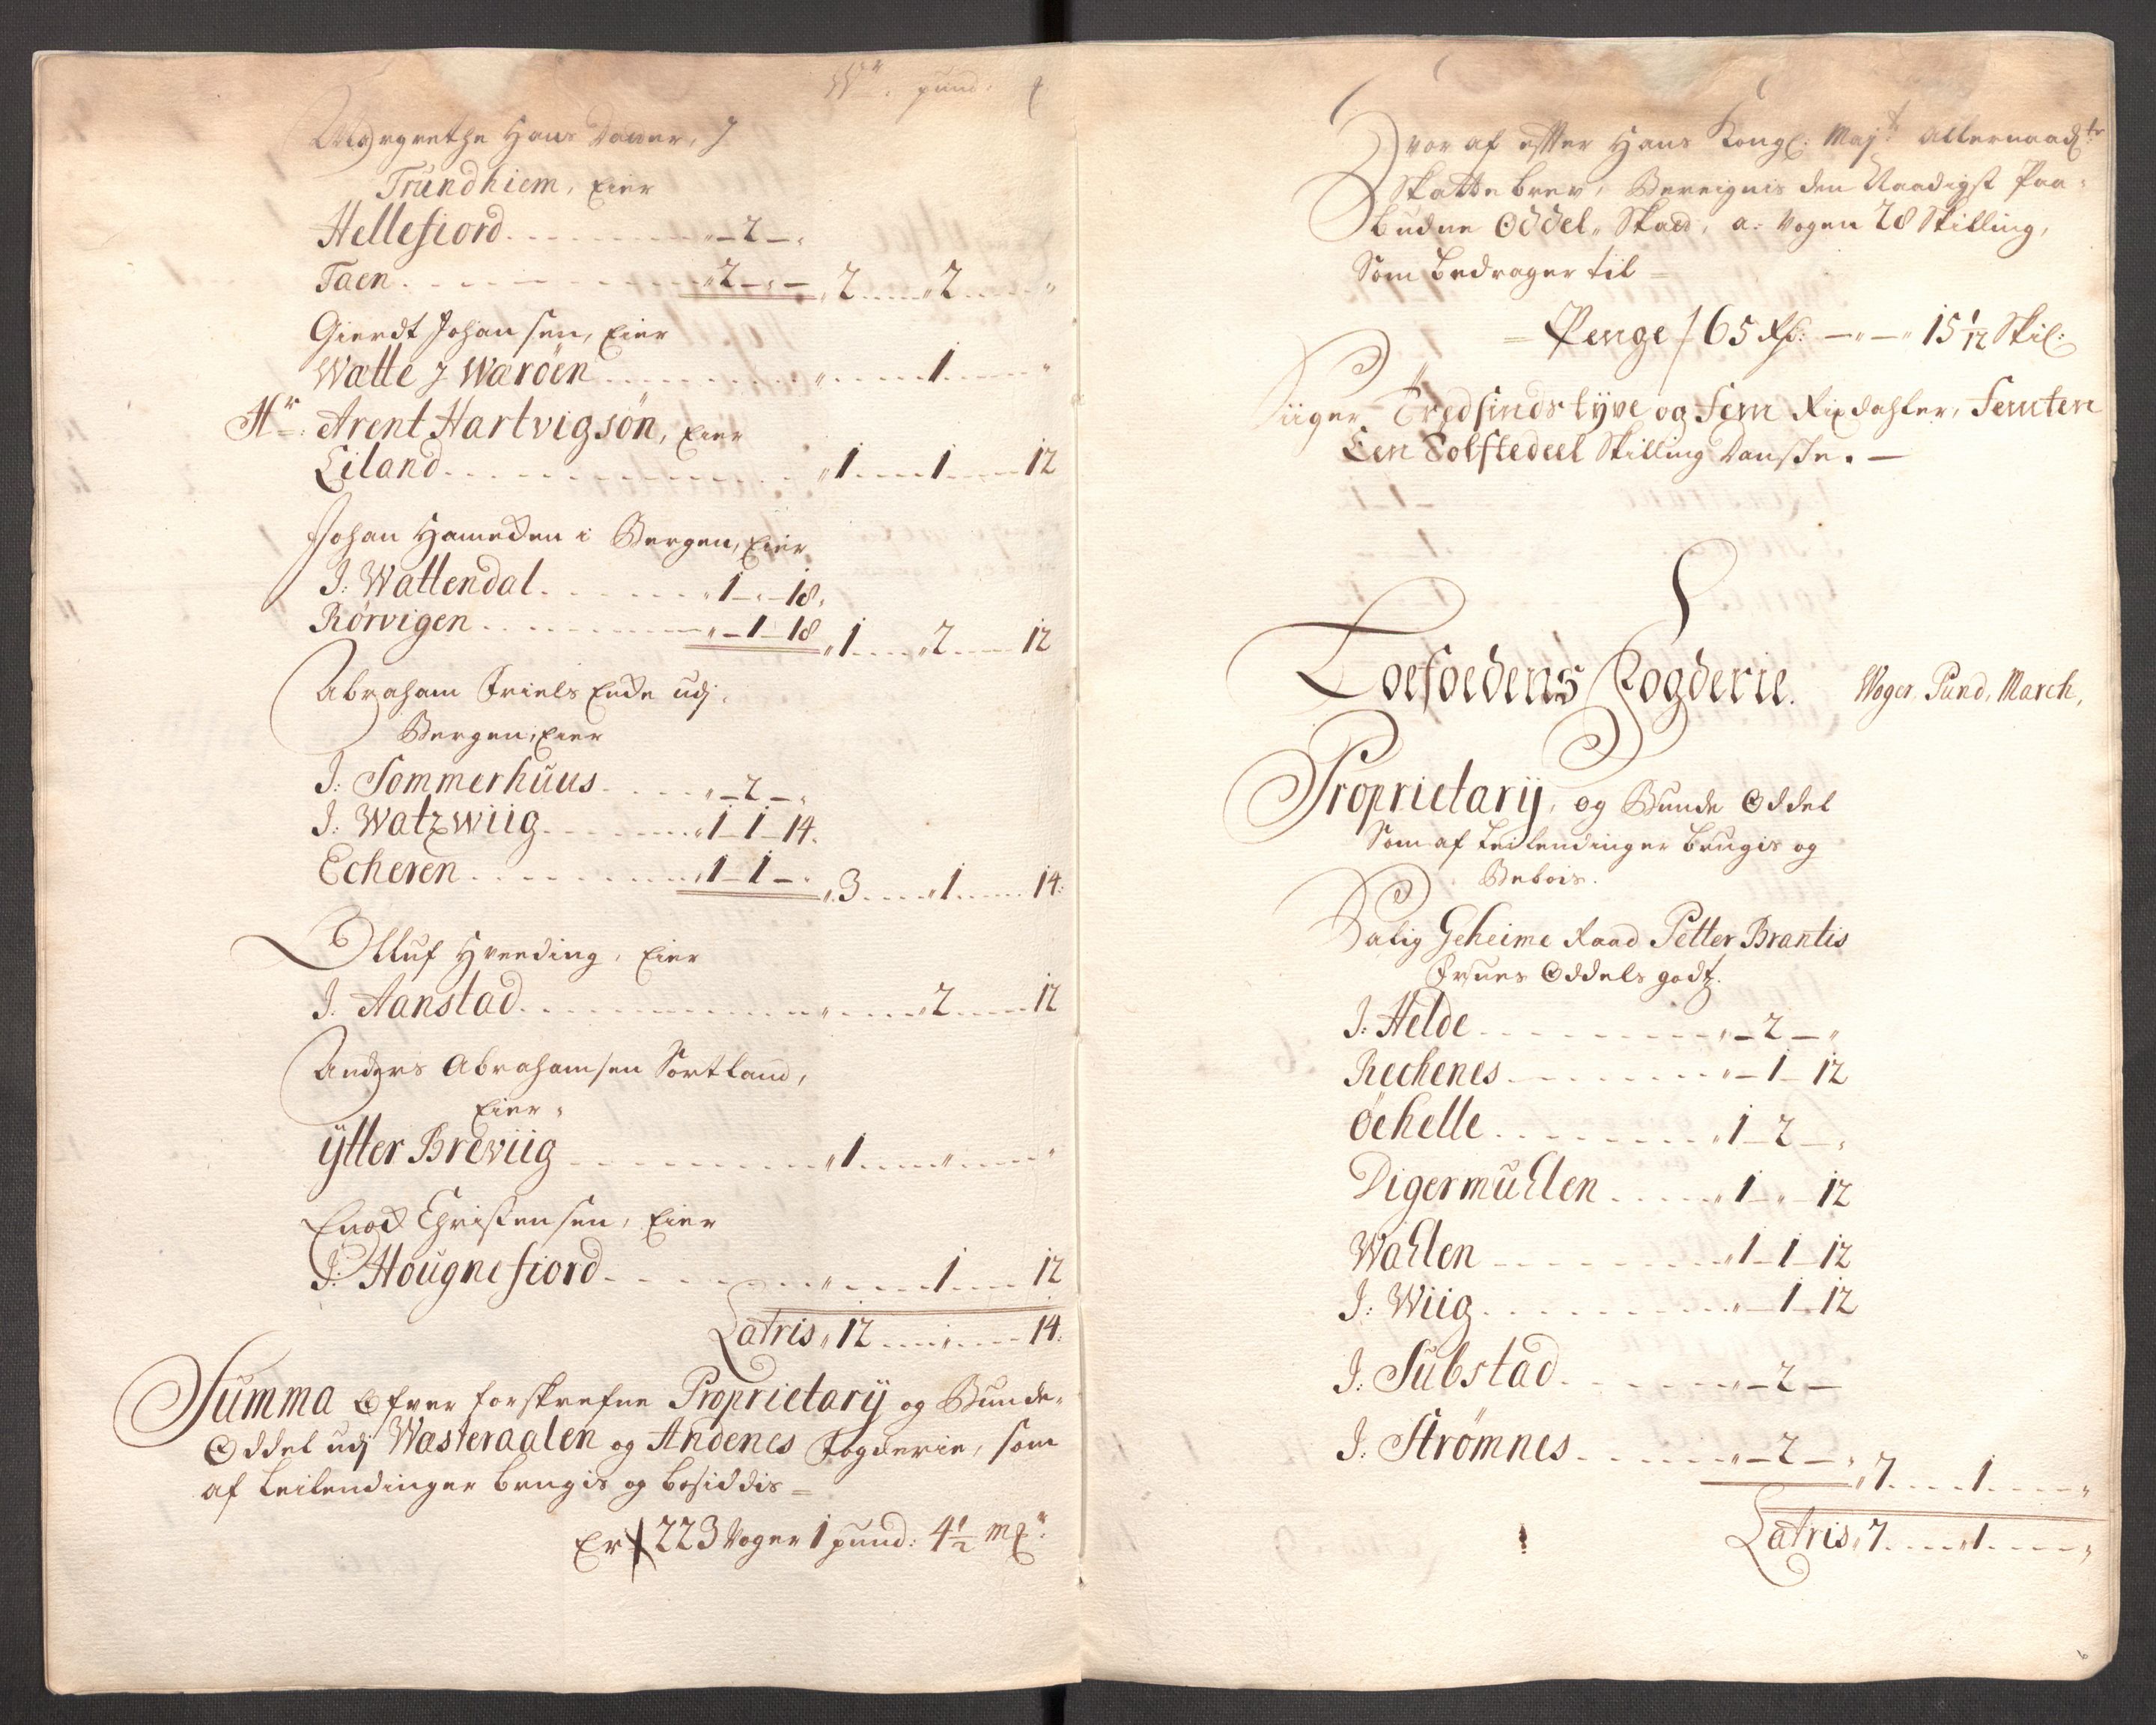 Wr: pund:
Margrethe Hans Daater, J
Trundhiem, Eier
Hellefiord . . . . . . . . „ – 2 – „
Taen . . . . . . . . „ 2 – „ – „ 2 . . . . „ 2 . . . . „
Gierdt Johansen, Eier
Watte J Waröen . . . . . . . . „ . . . . 1 . . . . „
Hr: Arent Hartvigsön, Eier
Eiland . . . . . . . . „ 1 . . . . 1 . . . . 12
Johan Hameken i Bergen, Eier
J: Wattendal . . . . . . „ 1 – „ – 18 „
Rörvigen . . . . . . . . „ – 1 – 18 „ 1 . . . . „ 2 . . . . 12
Abraham Friels Enke udj
Bergen, Eier
J: Sommerhuus . . . . „ – 2 – „
J: Watzwiig . . . . . . „ 1 – 1 – 14.
Echeren . . . . . . . . „ 1 – 1 – „ „ 3 . . . . „ 1 . . . . 14:
Olluf Hveding, Eier
J. Aanstad . . . . . . . . „ . . . . „ 2 . . . . 12
Anders Abrahamsen Sortland,
Eier „
ÿtter Breviig . . . . . . . . „ 1 . . . . „ . . . . „
Enok Christensen, Eier
J: Hougnefiord . . . . . . „ . . . . 1 . . . . 12
Latris „ 12 . . . . „ . . . . 14.
Summa Ofver forskrefne Proprietarij og Bunde-
Oddel udj Wasteraalen og Andenes Fogderie, som
af Leilendinger brugis og besiddis =
Er 223 Voger 1 pund: 4 1/2 mk:
Hvor af efter Hans Kongl: Majt: Allernaadgte:
Skattebrev, Bereignis den Naadigst Paa-
budne Oddel „ Skatt, a: Vogen 28 Skilling,
Som bedrager til =
= Penge / 65 Rd: – „ – „ 15 1/12 Skil:
Siiger Tredsindstÿve og fem Rixdahler, Femten
Een Tolftedeel Skilling Danske. –
Loefoedens Fogderie. Woger, Pund, March,
Proprietarij, og Bunde Oddel
Som af Leilendinger brugis og
Bebois.
Salig Geheime Raad Petter Brantis
Frues Oddels godtz.
J: Helde . . . . . . . . „ – 2 – „
Rechenes . . . . . . . . „ – 1 – 12
Öehelle . . . . . . . . „ 1 – 2 – „
Digermuhlen . . . . . „ 1 – „ – 12
Wahlen . . . . . . . . „ 1 – 1 – 12
J: Wiig . . . . . . . . „ – 1 – 12
J: Substad . . . . . . „ – 2 –
J: Strömnes . . . . . . „ – 2 – „ „ 7 . . . . 1 . . . . „
Latris „ 7 . . . . „ 1 . . . . „
6